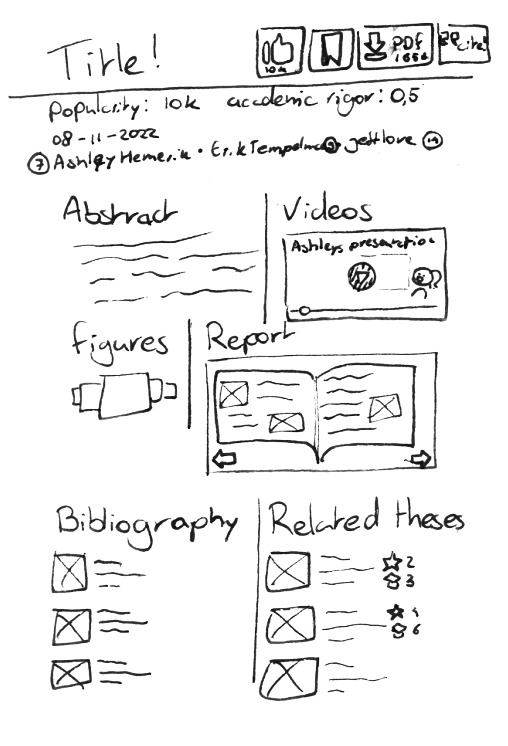 Title!
10k
PDF
cite!
popularity: 10k academic rigor: 0,5
08-11-2022
7 Ashley Hemerik • Erik Tempelman jett love
Abstract
Videos
Ashleys presentation
figures
Report
Bibliography
Related theses
2
3
6